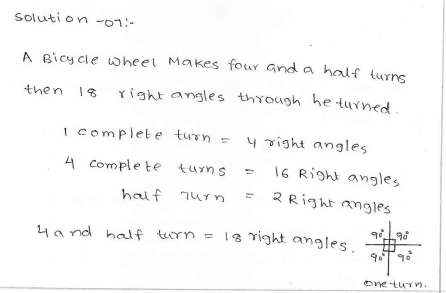 solution -07:-
A Bicycle wheel Makes four and a half turns
then 18 right angles through he turned.
1 complete turn = 4 right angles
4 complete turns = 16 Right angles
half Turn = 2 Right angles
4 and half turn = 18 right angles.
90° 90°
90° 90°
one turn.